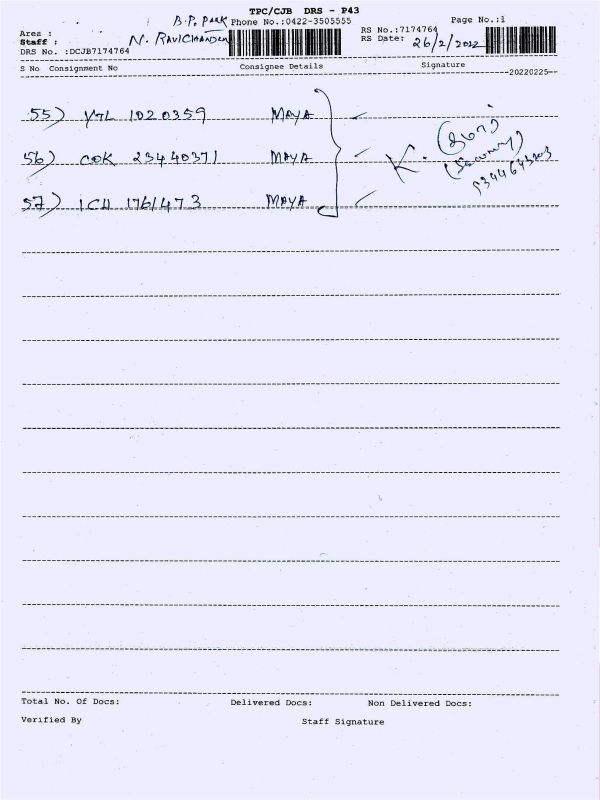 TPC/CJB DRS - P43
B.P. PARK Phone No.:0422-3505555 Page No.:1
Area :
Staff : N. RAVICHANDRAN RS No.:7174764
RS Date: 26/2/2022
DRS No. :DCJB7174764
S No Consignment No Consignee Details Signature
--20220225--
55) YTL 1020359 MAYA
56) COK 23440371 MAYA
57) ICH 1761473 MAYA
K.
(Security)
Total No. Of Docs: Delivered Docs: Non Delivered Docs:
Verified By Staff Signature